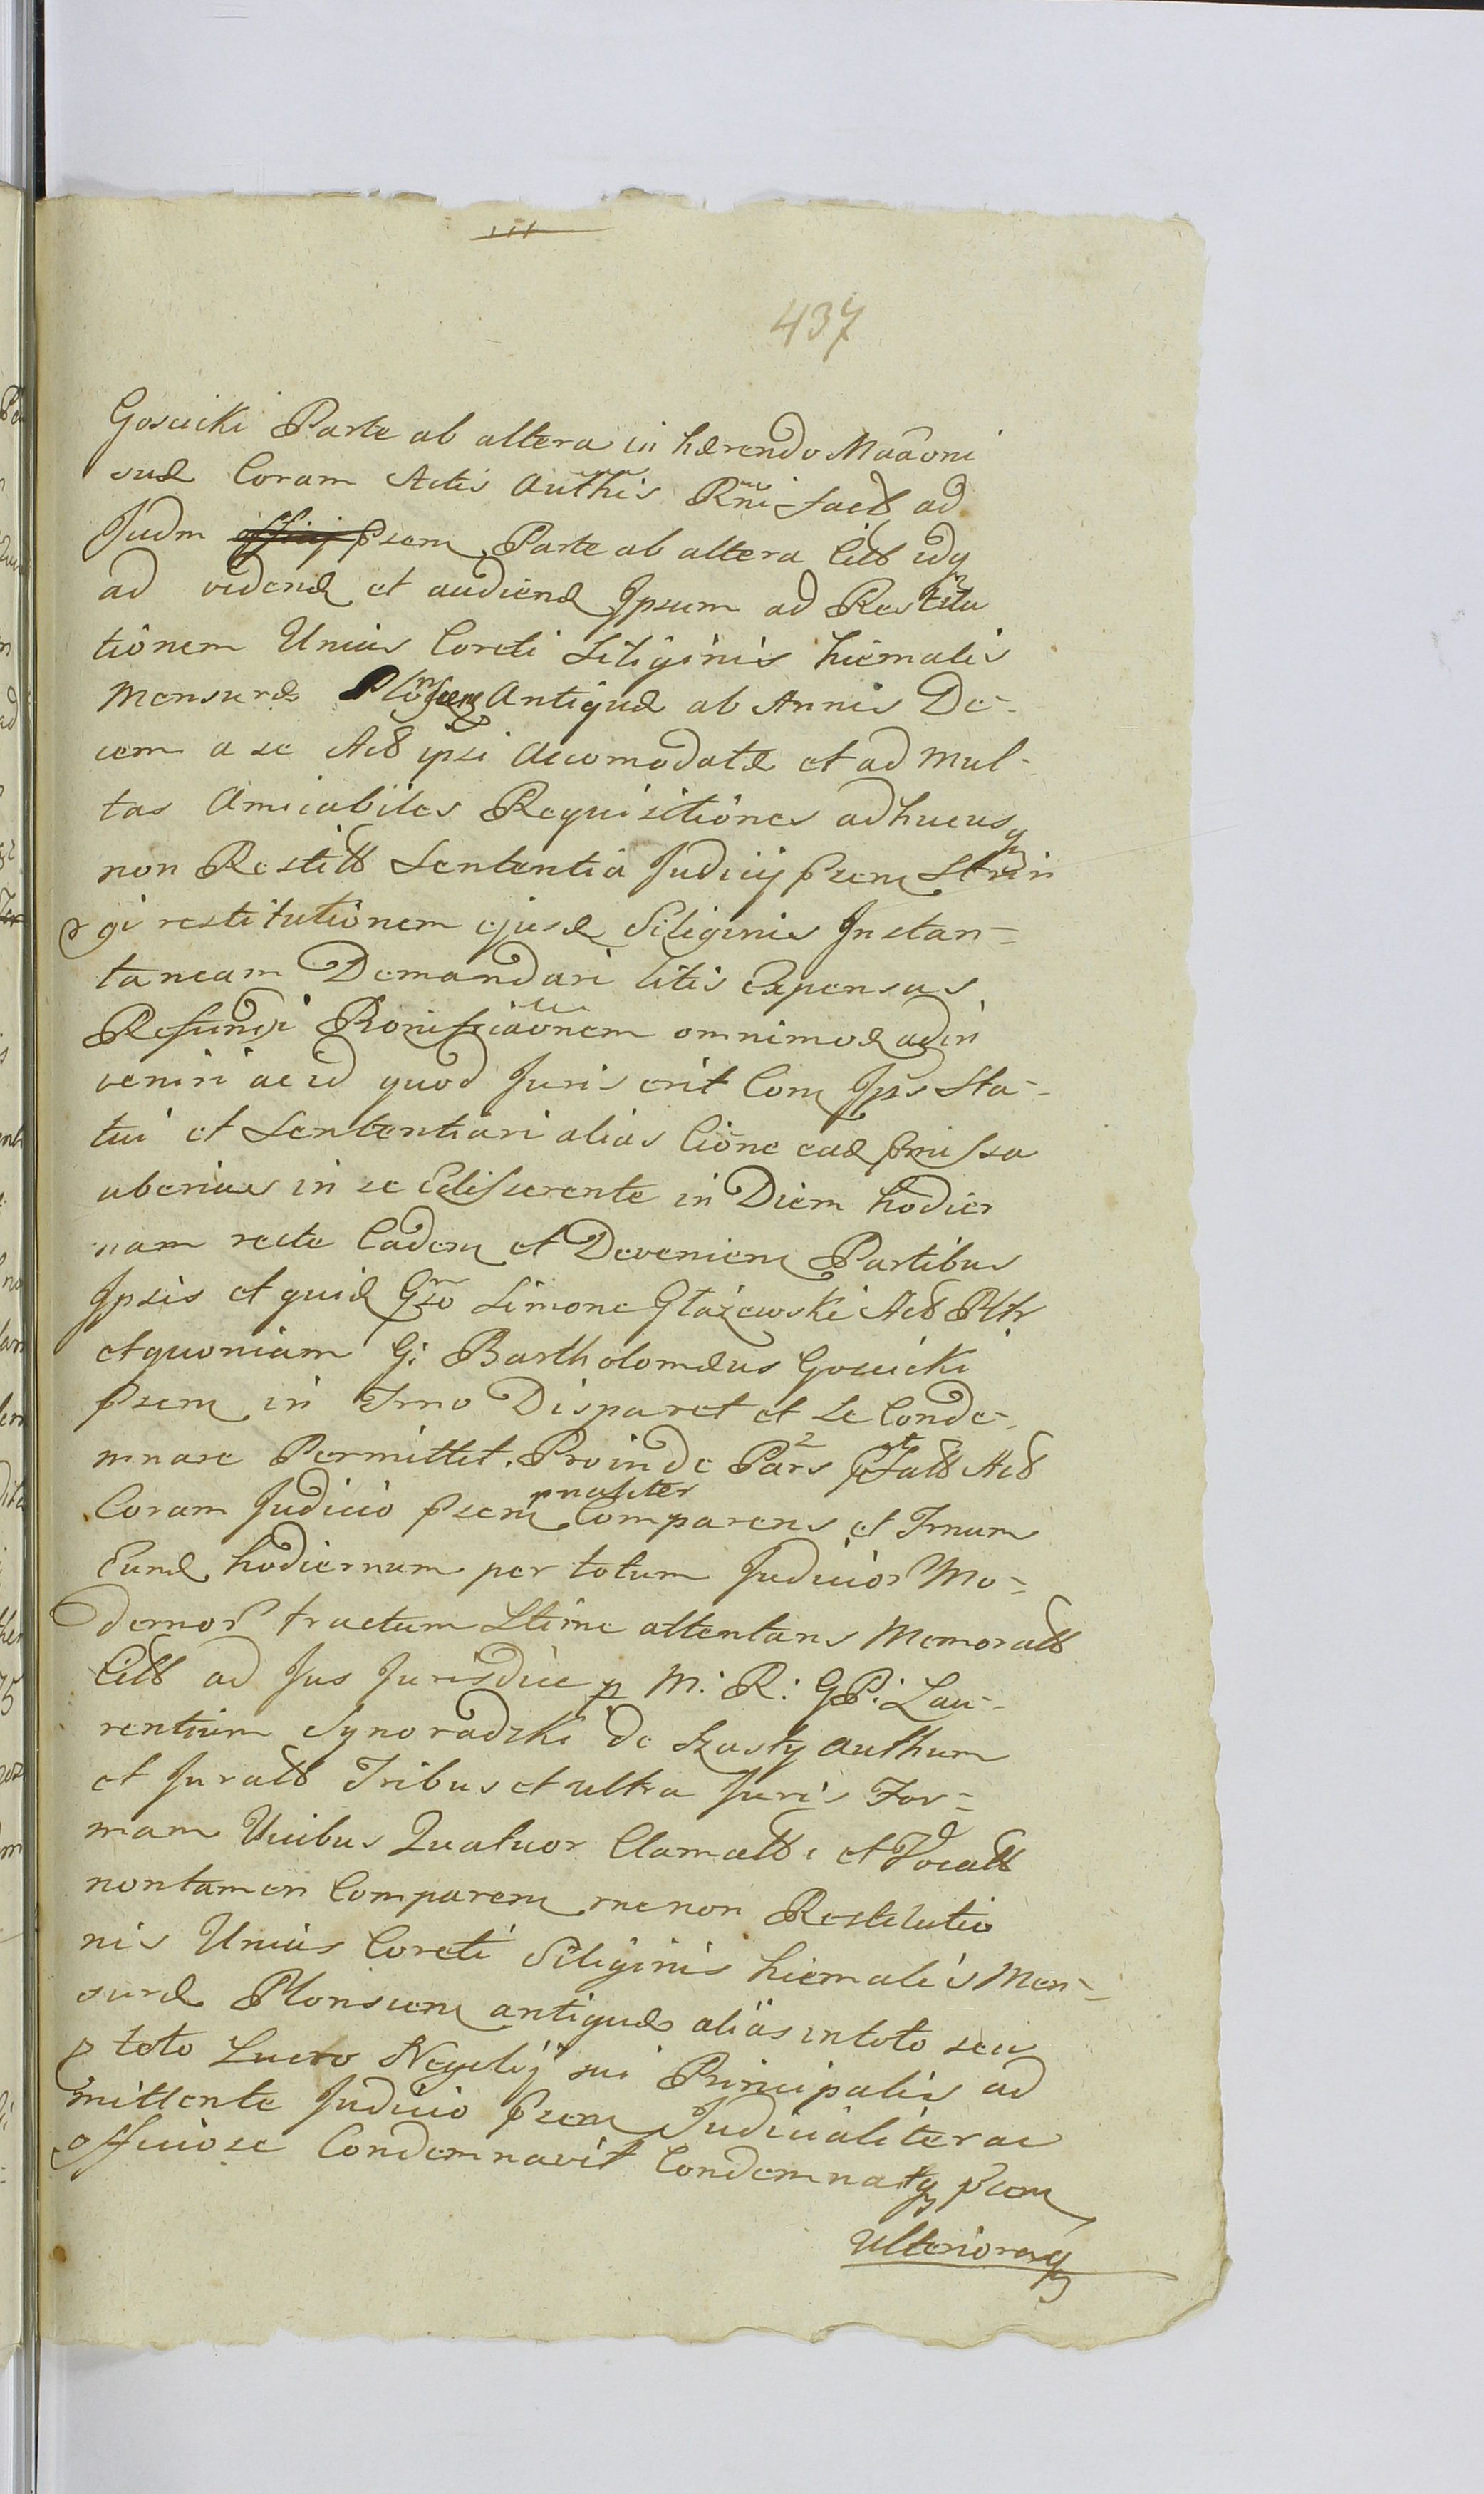 437
Goscicki Parte ab altera in hærendo Maãoni
suæ Coram Actis Authis Rñi fact ad
Judm Psem Parte ab altera Citt idq
ad videnđ et audienđ Ipsum ad Restitu
tionem Unius Coreti Siliginis hiemalis
Mensuræ Antiquæ ab Annis De-
cem a se Act ipsi Accomodatæ et ad Mul-
tas Amicabiles Requisitiones adhucusq
non Restitt Sententia Judicij Psem Strin
gi restitutionem ejusđ Siliginis Instan=
taneam Demandari litis Expensas
Refundi omnimođ adin
veniri ac id quod Juris erit Com Ips Sta-
tui et Sententiari alias Cione eađ pmissa
uberius in se Edisserente in Diem hodier
nam recte Cadem et Deveniem Partibus
Ipsis et quiđ Gnso Simone Głażewski Act Pltr
et quoniam G: Bartholomæus Goscicki
Psem in Trno Disparet et se Conde-
mnare Permittet. Proinde Pars Act
Coram Judicio Psem pnaliter Comparens et Trnum
Eunđ hodiernum per totum Judicior Mo=
dernor tractum Stime attentans Memoratt
Citt ad Jus Jurisdice p M: R: GP: Lau-
rentium Synoradzki de Szasty Authum
et Juratt Tribus et ultra Juris For=
mam Vicibus Quatuor Clamatt: et Vocatt
nontamen Comparem rnenon Restitutio
nis Unius Coreti Siliginis hiemalis Men=
suræ Plonscem antiquæ alias in toto seu
p toto Lucro Negotij sui Principalis ad
mittente Judicio Psem Judicialiter ac
officiose Condemnavit Condemnatq Psem
Ulterioremq